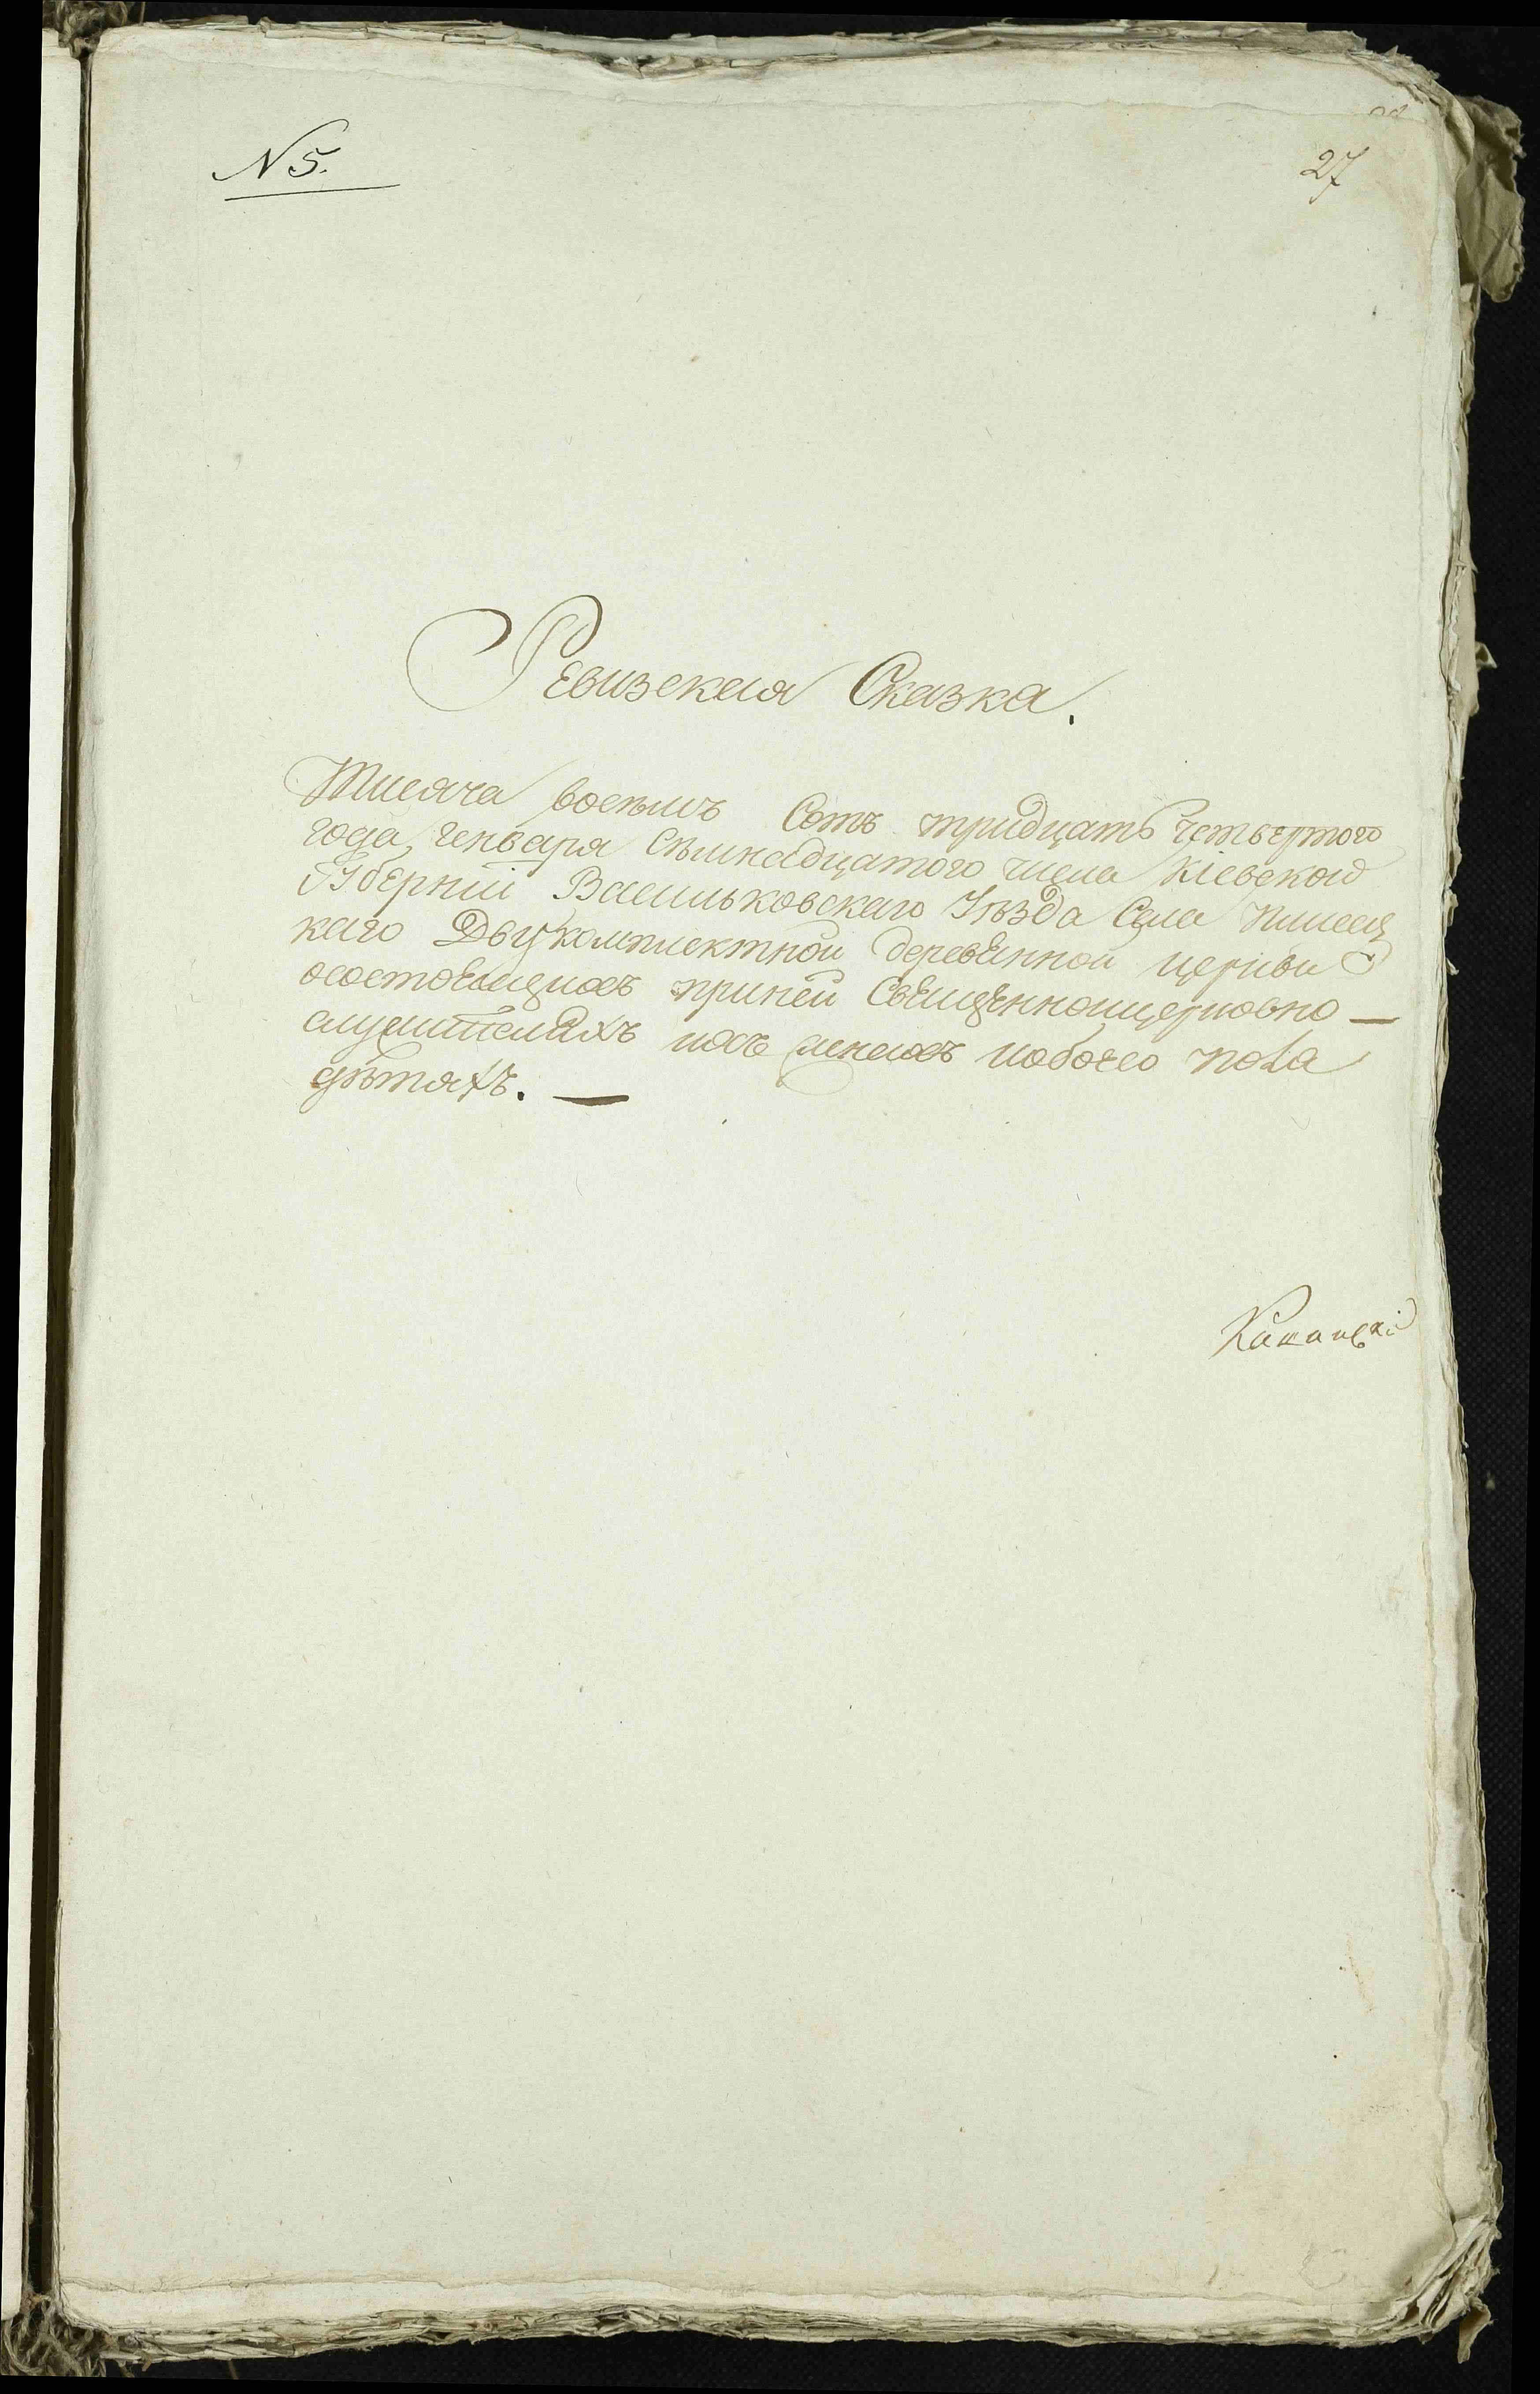 N 5.
27
Ревизская Сказка.
Тисяча восемъ Сотъ тридцать четвертого
года, генваря Сѣмнадцатого числа Кіевской
Губернии Васильковскаго Уѣзда Села Пивец
каго Двукомплектной деревянной церкви
осостоящихъ приней Священноицерковно —
служителяхъ ихъ женахъ иобоего пола
дѣтяхъ. —